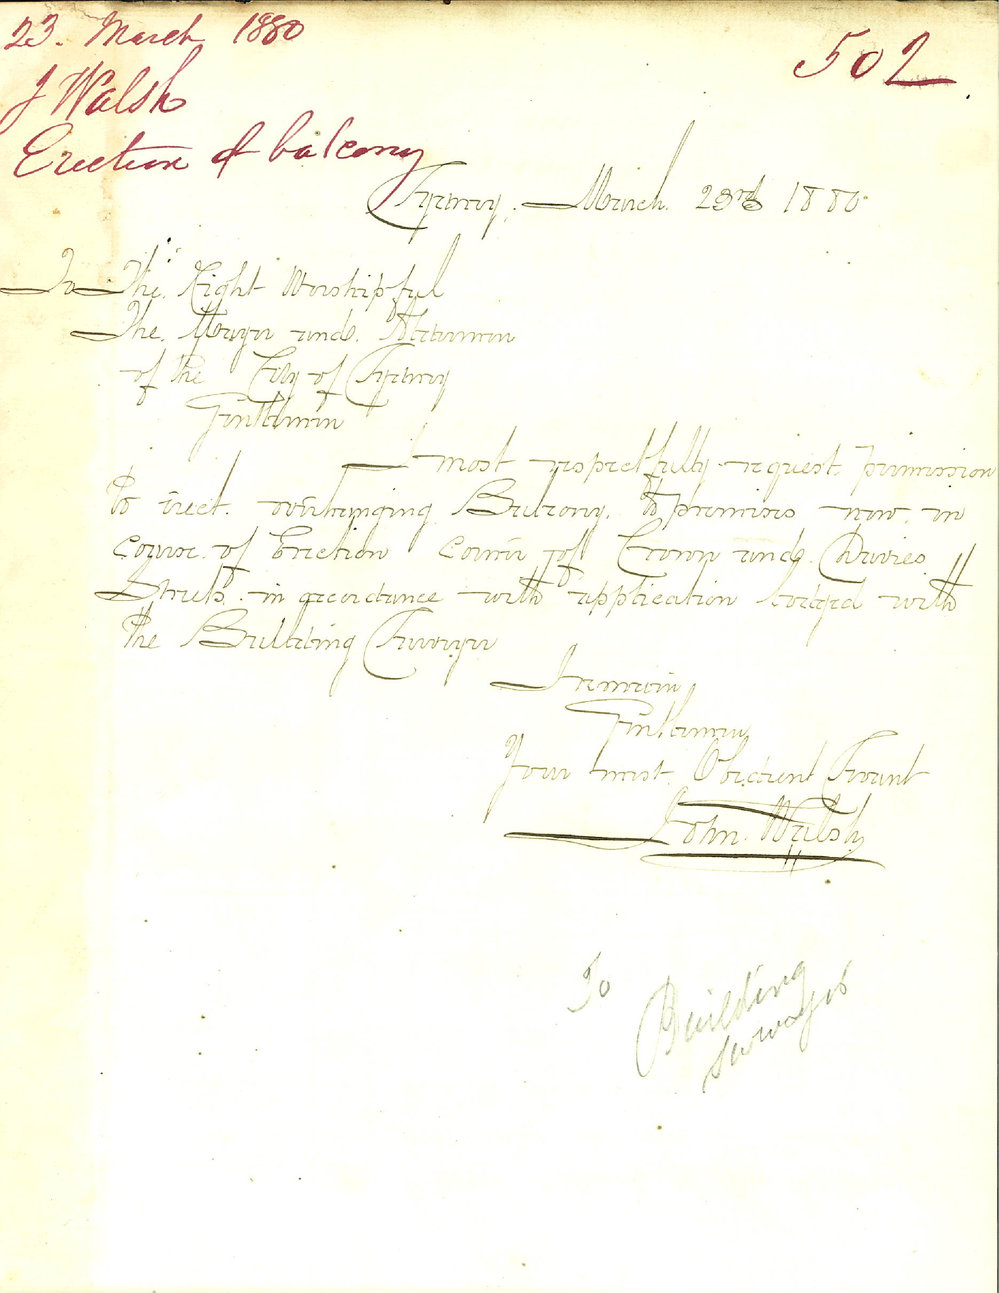 23. March 1880
J Walsh
Erection of balcony
502
Sydney. March. 23rd 1880
To The Right Worshipful
The Mayor and Aldermen
of the City of Sydney
Gentlemen
I most respectfully request permission
to erect overhanging Balcony. to premises now in
course of Erection corner of Crown and Davies
Streets in accordance with application lodged with
the Building Surveyor
I remain
Gentlemen
Your most Obedient Servant
John Walsh
To Building
Surveyor